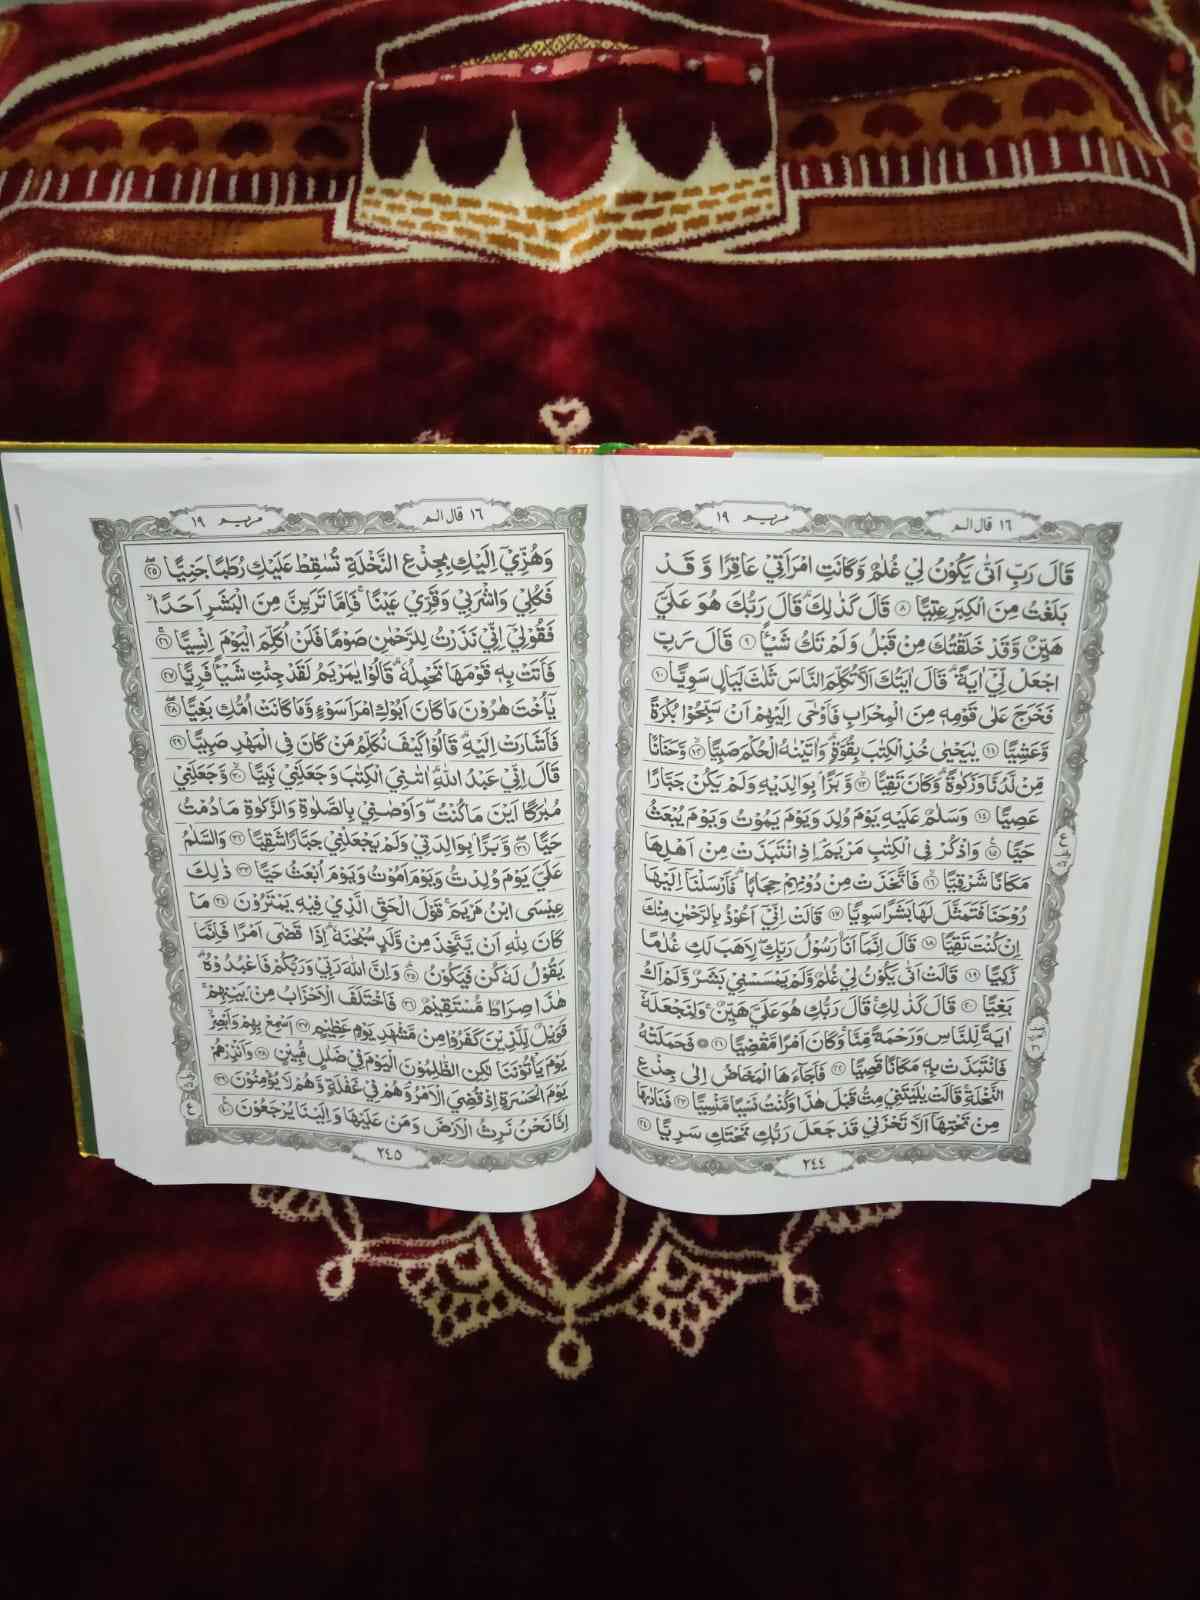 ١٦ قال الم
مريم ١٩
قَالَ رَبِّ اَنّٰى يَكُوْنُ لِيْ غُلٰمٌ وَّكَانَتِ امْرَاَتِيْ عَاقِرًا وَّ قَدْ
بَلَغْتُ مِنَ الْكِبَرِ عِتِيًّا ٨ قَالَ كَذٰلِكَ ۚ قَالَ رَبُّكَ هُوَ عَلَيَّ
هَيِّنٌ وَّقَدْ خَلَقْتُكَ مِنْ قَبْلُ وَلَمْ تَكُ شَيْـًٔا ٩ قَالَ رَبِّ
اجْعَلْ لِّيْٓ اٰيَةً ۗ قَالَ اٰيَتُكَ اَلَّا تُكَلِّمَ النَّاسَ ثَلٰثَ لَيَالٍ سَوِيًّا ١٠
فَخَرَجَ عَلٰى قَوْمِهٖ مِنَ الْمِحْرَابِ فَاَوْحٰٓى اِلَيْهِمْ اَنْ سَبِّحُوْا بُكْرَةً
وَّعَشِيًّا ١١ يٰيَحْيٰى خُذِ الْكِتٰبَ بِقُوَّةٍ ۗ وَاٰتَيْنٰهُ الْحُكْمَ صَبِيًّا ١٢ وَّحَنَانًا
مِّنْ لَّدُنَّا وَزَكٰوةً ۗ وَكَانَ تَقِيًّا ١٣ وَّبَرًّا بِوَالِدَيْهِ وَلَمْ يَكُنْ جَبَّارًا
عَصِيًّا ١٤ وَسَلٰمٌ عَلَيْهِ يَوْمَ وُلِدَ وَيَوْمَ يَمُوْتُ وَيَوْمَ يُبْعَثُ
حَيًّا ١٥ وَاذْكُرْ فِى الْكِتٰبِ مَرْيَمَ ۘ اِذِ انْتَبَذَتْ مِنْ اَهْلِهَا
مَكَانًا شَرْقِيًّا ١٦ فَاتَّخَذَتْ مِنْ دُوْنِهِمْ حِجَابًا ۗ فَاَرْسَلْنَآ اِلَيْهَا
رُوْحَنَا فَتَمَثَّلَ لَهَا بَشَرًا سَوِيًّا ١٧ قَالَتْ اِنِّيْٓ اَعُوْذُ بِالرَّحْمٰنِ مِنْكَ
اِنْ كُنْتَ تَقِيًّا ١٨ قَالَ اِنَّمَآ اَنَا۠ رَسُوْلُ رَبِّكِ ۖ لِاَهَبَ لَكِ غُلٰمًا
زَكِيًّا ١٩ قَالَتْ اَنّٰى يَكُوْنُ لِيْ غُلٰمٌ وَّلَمْ يَمْسَسْنِيْ بَشَرٌ وَّلَمْ اَكُ
بَغِيًّا ٢٠ قَالَ كَذٰلِكِ ۚ قَالَ رَبُّكِ هُوَ عَلَيَّ هَيِّنٌ ۚ وَلِنَجْعَلَهٗٓ
اٰيَةً لِّلنَّاسِ وَرَحْمَةً مِّنَّا ۚ وَكَانَ اَمْرًا مَّقْضِيًّا ٢١ فَحَمَلَتْهُ
فَانْتَبَذَتْ بِهٖ مَكَانًا قَصِيًّا ٢٢ فَاَجَآءَهَا الْمَخَاضُ اِلٰى جِذْعِ
النَّخْلَةِ ۚ قَالَتْ يٰلَيْتَنِيْ مِتُّ قَبْلَ هٰذَا وَكُنْتُ نَسْيًا مَّنْسِيًّا ٢٣ فَنَادٰىهَا
مِنْ تَحْتِهَآ اَلَّا تَحْزَنِيْ قَدْ جَعَلَ رَبُّكِ تَحْتَكِ سَرِيًّا ٢٤
٢٤٤
١٦ قال الم
مريم ١٩
وَهُزِّيْٓ اِلَيْكِ بِجِذْعِ النَّخْلَةِ تُسٰقِطْ عَلَيْكِ رُطَبًا جَنِيًّا ٢٥
فَكُلِيْ وَاشْرَبِيْ وَقَرِّيْ عَيْنًا ۚ فَاِمَّا تَرَيِنَّ مِنَ الْبَشَرِ اَحَدًا ۙ
فَقُوْلِيْٓ اِنِّيْ نَذَرْتُ لِلرَّحْمٰنِ صَوْمًا فَلَنْ اُكَلِّمَ الْيَوْمَ اِنْسِيًّا ٢٦
فَاَتَتْ بِهٖ قَوْمَهَا تَحْمِلُهٗ ۗ قَالُوْا يٰمَرْيَمُ لَقَدْ جِئْتِ شَيْـًٔا فَرِيًّا ٢٧
يٰٓاُخْتَ هٰرُوْنَ مَا كَانَ اَبُوْكِ امْرَاَ سَوْءٍ وَّمَا كَانَتْ اُمُّكِ بَغِيًّا ٢٨
فَاَشَارَتْ اِلَيْهِ ۗ قَالُوْا كَيْفَ نُكَلِّمُ مَنْ كَانَ فِى الْمَهْدِ صَبِيًّا ٢٩
قَالَ اِنِّيْ عَبْدُ اللّٰهِ ۗ اٰتٰىنِيَ الْكِتٰبَ وَجَعَلَنِيْ نَبِيًّا ٣٠ وَّجَعَلَنِيْ
مُبٰرَكًا اَيْنَ مَا كُنْتُ ۖ وَاَوْصٰنِيْ بِالصَّلٰوةِ وَالزَّكٰوةِ مَا دُمْتُ
حَيًّا ٣١ وَّبَرًّا بِوَالِدَتِيْ وَلَمْ يَجْعَلْنِيْ جَبَّارًا شَقِيًّا ٣٢ وَالسَّلٰمُ
عَلَيَّ يَوْمَ وُلِدْتُّ وَيَوْمَ اَمُوْتُ وَيَوْمَ اُبْعَثُ حَيًّا ٣٣ ذٰلِكَ
عِيْسَى ابْنُ مَرْيَمَ ۚ قَوْلَ الْحَقِّ الَّذِيْ فِيْهِ يَمْتَرُوْنَ ٣٤ مَا
كَانَ لِلّٰهِ اَنْ يَّتَّخِذَ مِنْ وَّلَدٍ سُبْحٰنَهٗ ۗ اِذَا قَضٰٓى اَمْرًا فَاِنَّمَا
يَقُوْلُ لَهٗ كُنْ فَيَكُوْنُ ٣٥ وَاِنَّ اللّٰهَ رَبِّيْ وَرَبُّكُمْ فَاعْبُدُوْهُ ۗ
هٰذَا صِرَاطٌ مُّسْتَقِيْمٌ ٣٦ فَاخْتَلَفَ الْاَحْزَابُ مِنْۢ بَيْنِهِمْ ۚ
فَوَيْلٌ لِّلَّذِيْنَ كَفَرُوْا مِنْ مَّشْهَدِ يَوْمٍ عَظِيْمٍ ٣٧ اَسْمِعْ بِهِمْ وَاَبْصِرْ ۙ
يَوْمَ يَأْتُوْنَنَا لٰكِنِ الظّٰلِمُوْنَ الْيَوْمَ فِيْ ضَلٰلٍ مُّبِيْنٍ ٣٨ وَاَنْذِرْهُمْ
يَوْمَ الْحَسْرَةِ اِذْ قُضِيَ الْاَمْرُ ۘ وَهُمْ فِيْ غَفْلَةٍ وَّهُمْ لَا يُؤْمِنُوْنَ ٣٩
اِنَّا نَحْنُ نَرِثُ الْاَرْضَ وَمَنْ عَلَيْهَا وَاِلَيْنَا يُرْجَعُوْنَ ٤٠
٢٤٥